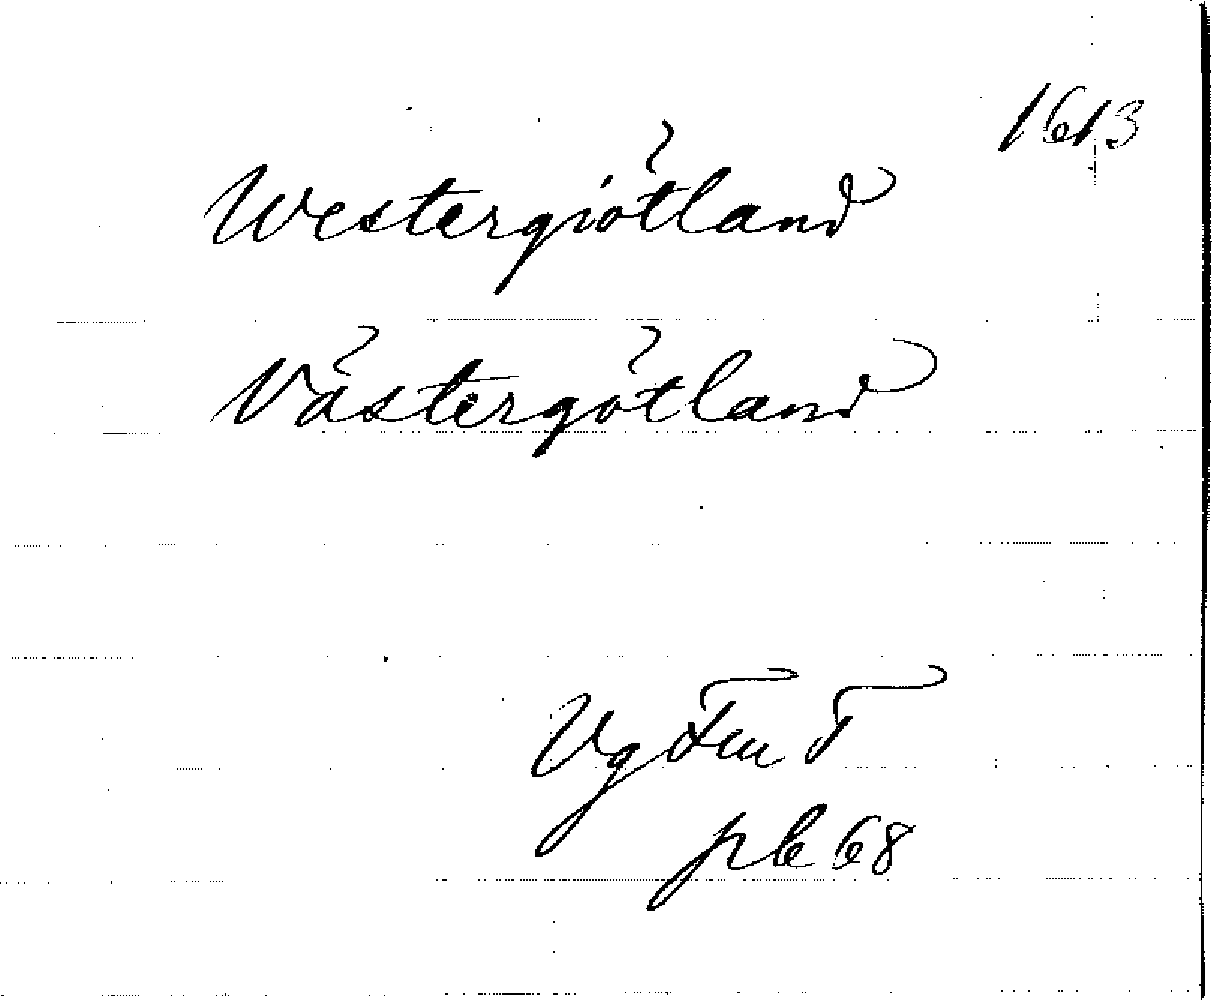 1613
Westergiötland
Västergötland
Vg Fru F
pl 6 68